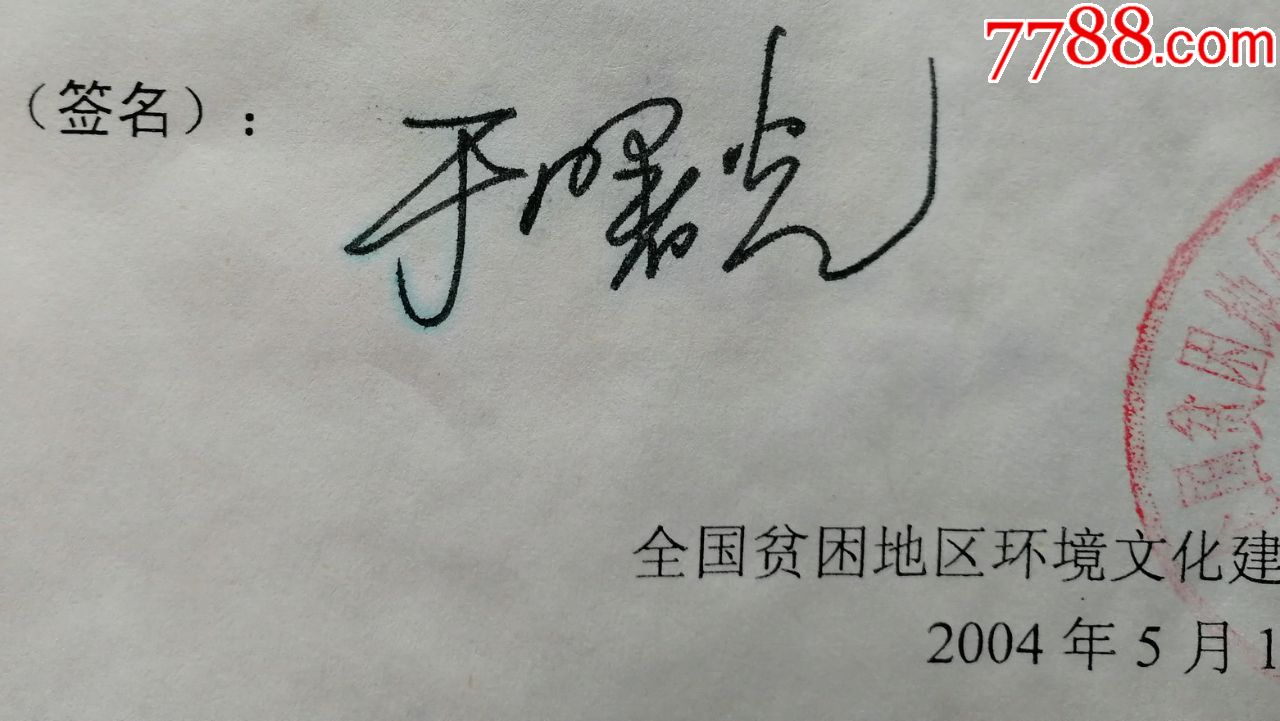 7788.com
（签名）：
于曙光
全国贫困地区环境文化建
2004 年 5 月 1
国贫困地